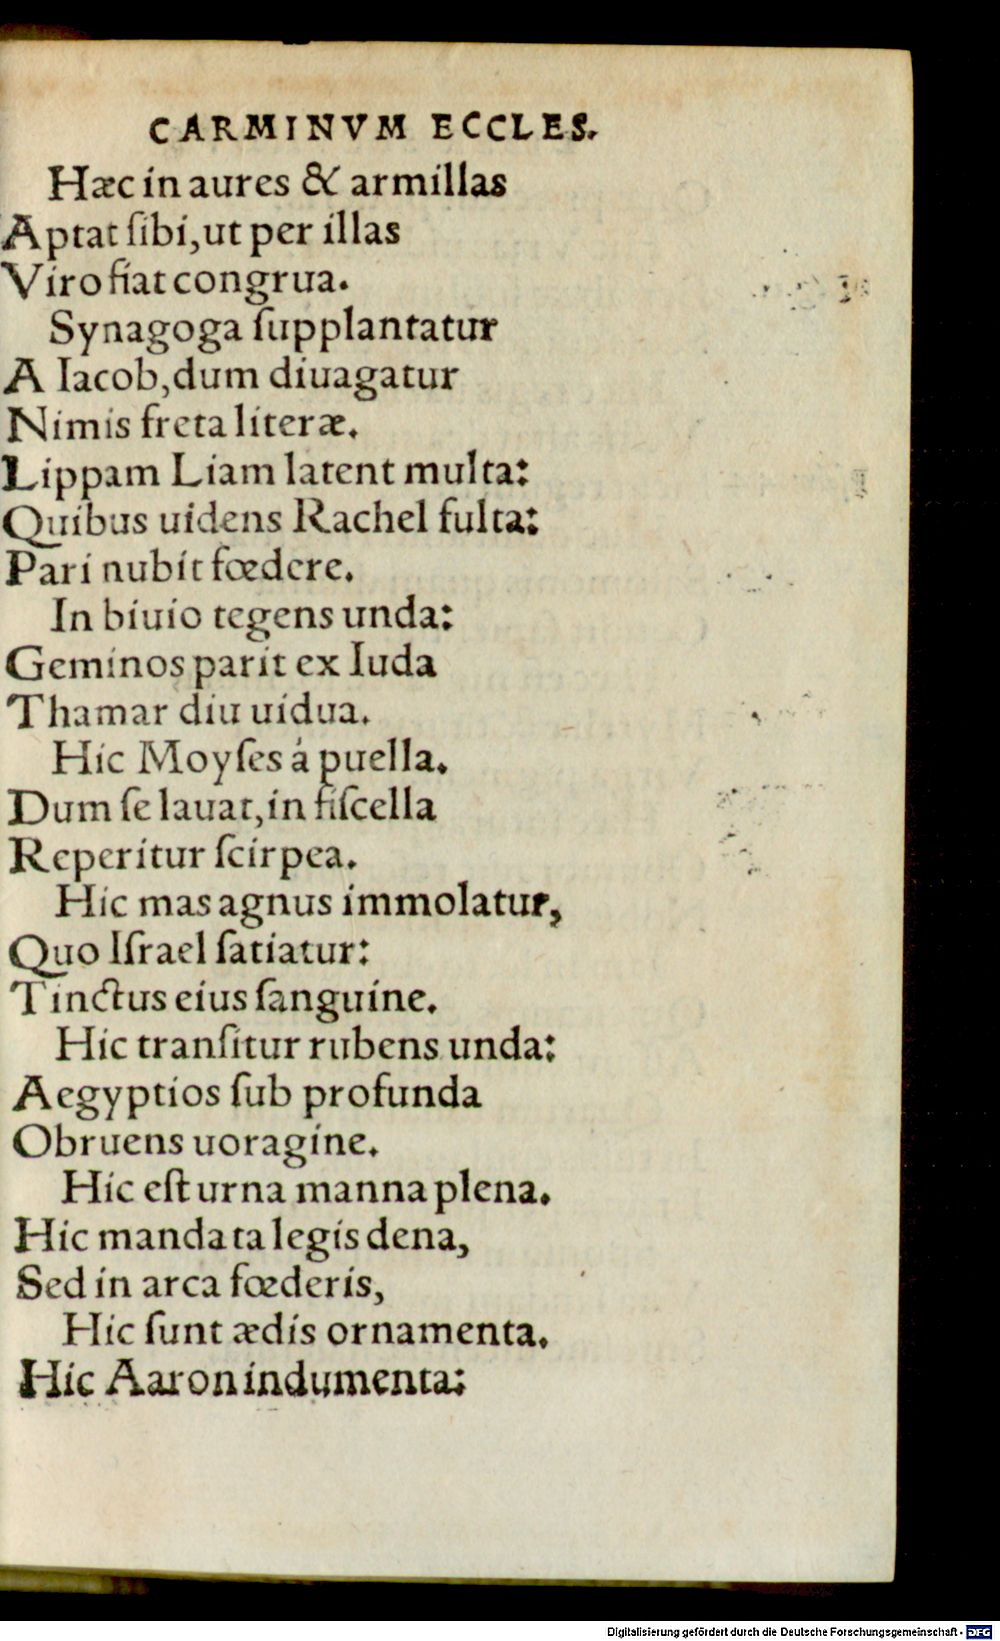 CARMINVM ECCLES.
Hæc in aures & armillas
Aptat ſibi, ut per illas
Viro fiat congrua.
Synagoga ſupplantatur
A Iacob, dum diuagatur
Nimis freta literæ.
Lippam Liam latent multa:
Quibus uidens Rachel fulta:
Pari nubit fœdere.
In biuio tegens unda:
Geminos parit ex Iuda
Thamar diu uidua.
Hic Moyſes à puella.
Dum ſe lauat, in fiſcella
Reperitur ſcirpea.
Hic mas agnus immolatur,
Quo Iſrael ſatiatur:
Tinctus eius ſanguine.
Hic tranſitur rubens unda:
Aegyptios ſub profunda
Obruens uoragine.
Hic eſt urna manna plena.
Hic mandata legis dena,
Sed in arca fœderis,
Hic ſunt ædis ornamenta.
Hic Aaron indumenta:
Digitalisierung gefördert durch die Deutsche Forschungsgemeinschaft - DFG